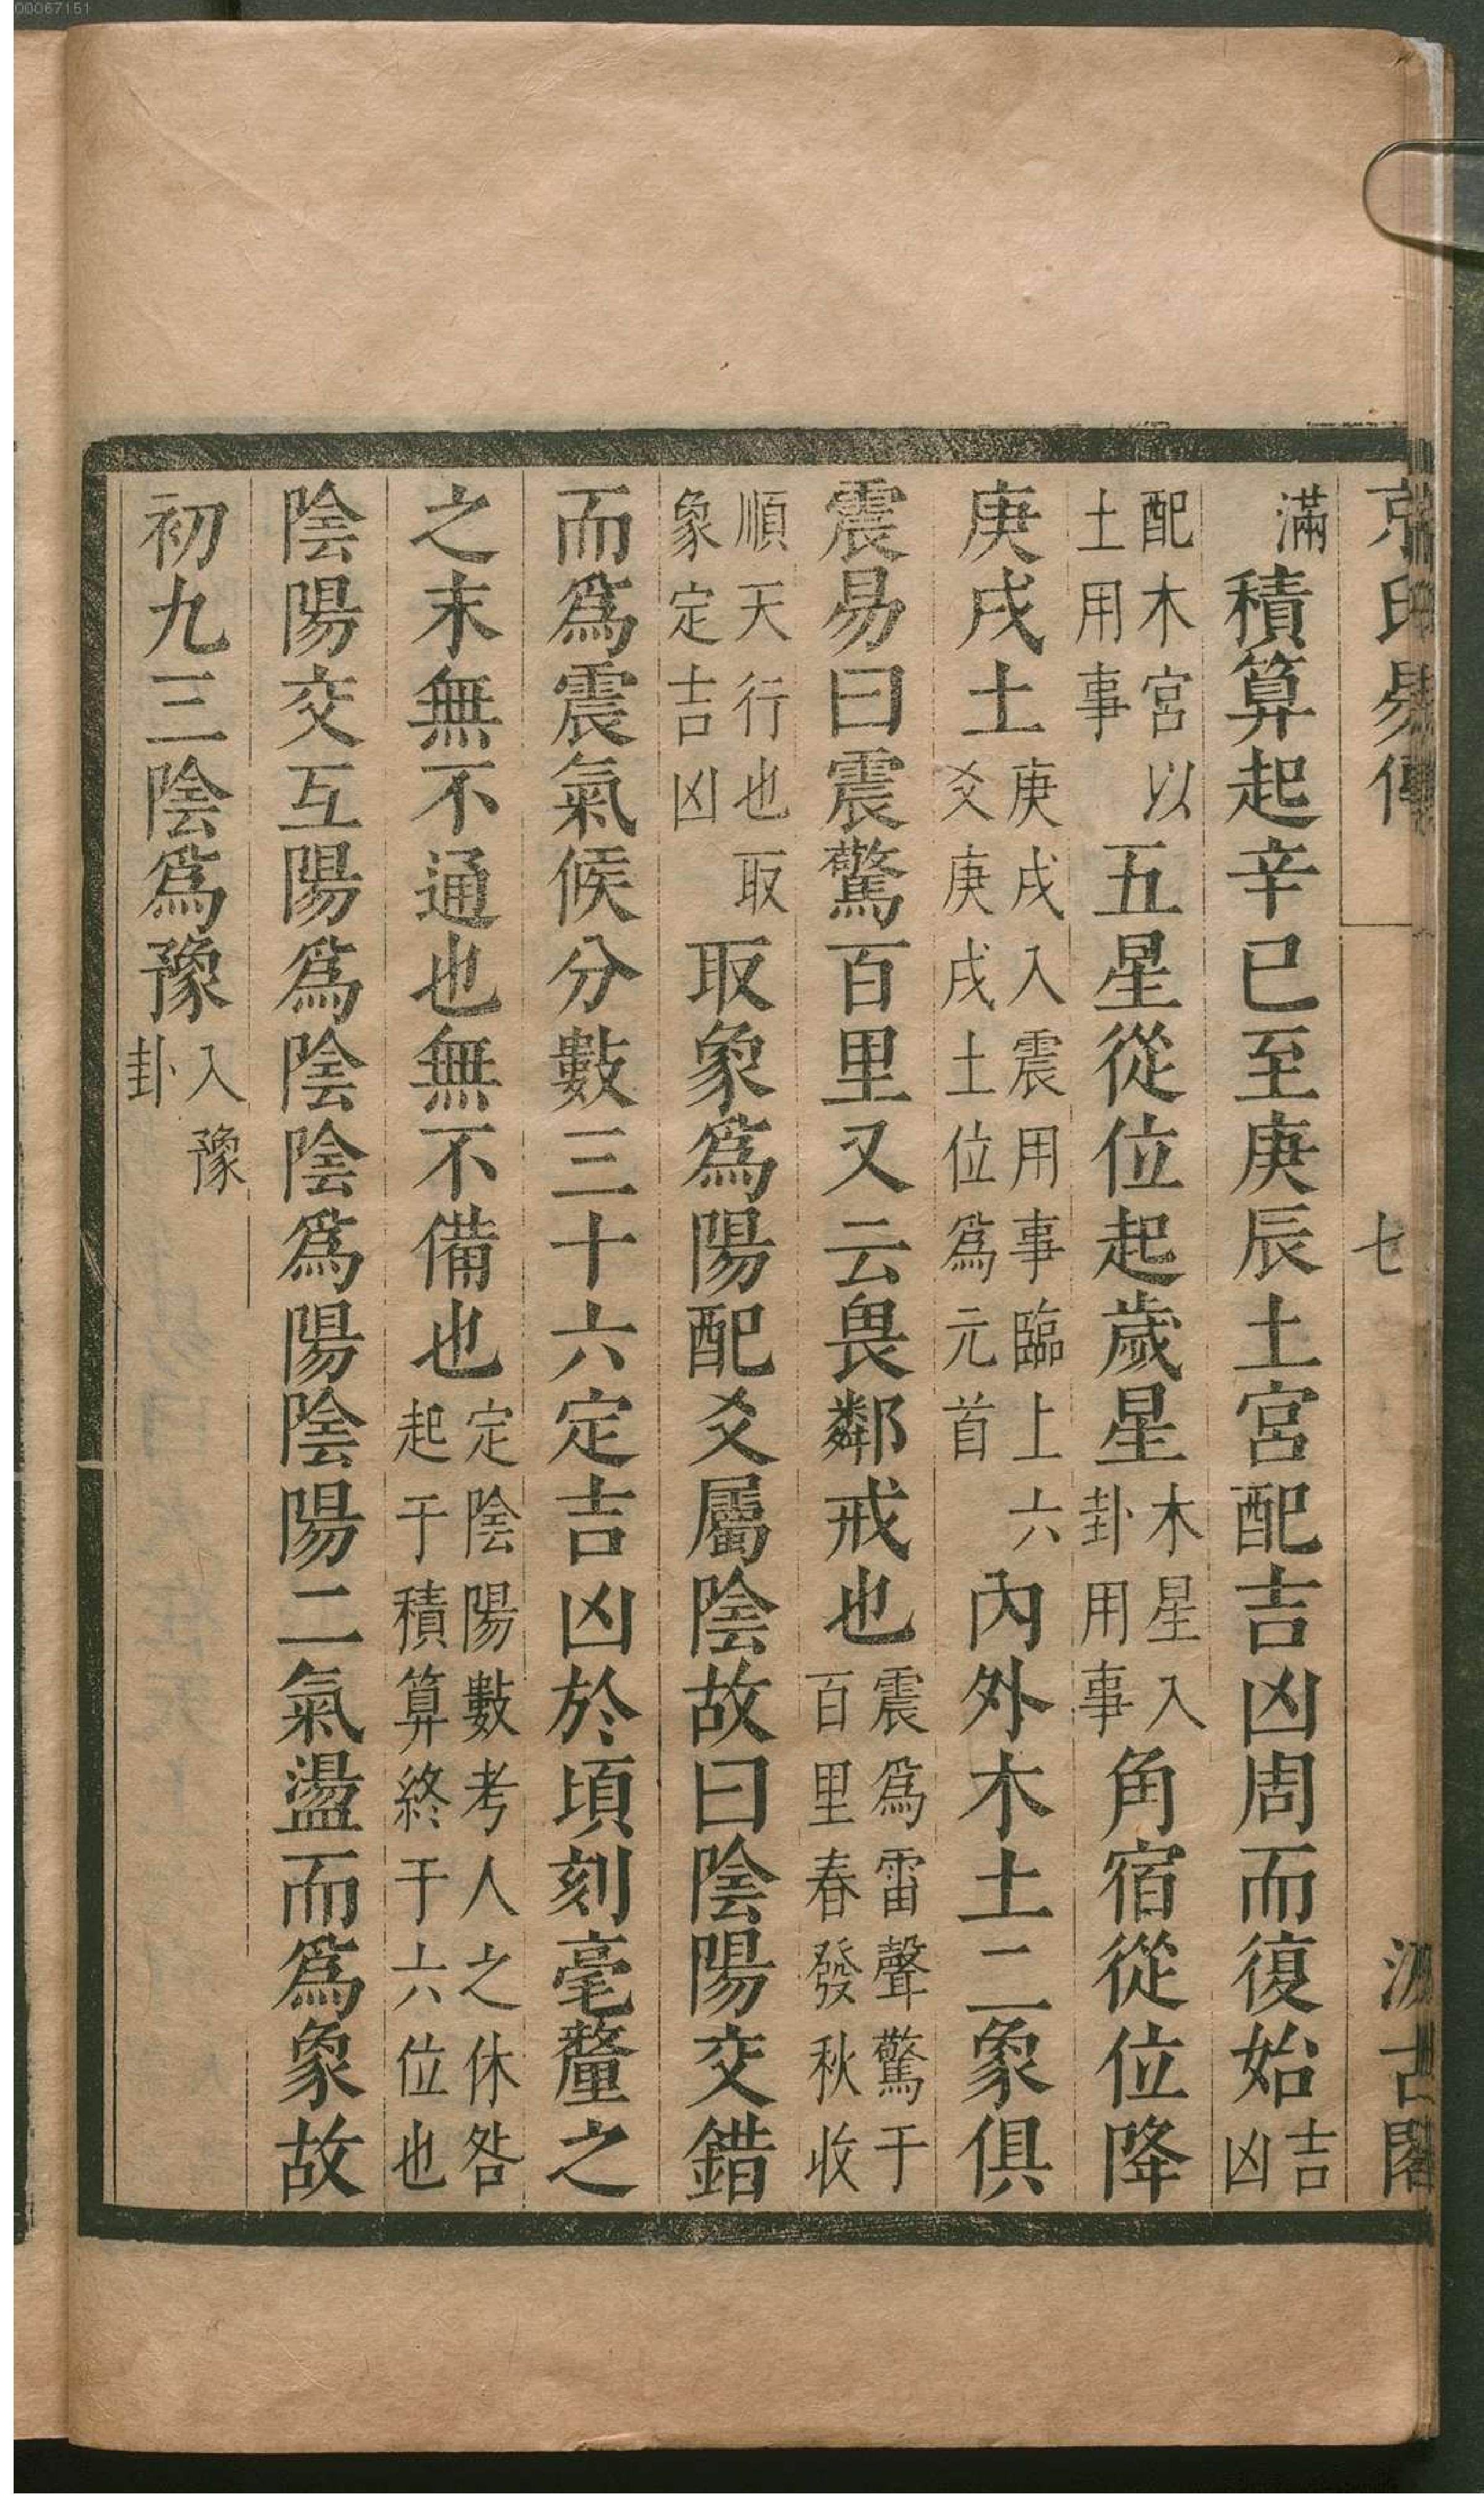 京氏易傳 七 汲古閣
滿積算起辛巳至庚辰土宮配吉凶周而復始吉凶
配木宮以土用事五星從位起歲星木星入卦用事角宿從位降
庚戌土庚戌入震用事臨上六爻庚戌土位爲元首內外木土二象俱
震易曰震驚百里又云畏鄰戒也震爲雷聲驚于百里春發秋收
順天行也取象定吉凶取象爲陽配爻屬陰故曰陰陽交錯
而爲震氣候分數三十六定吉凶於頃刻毫釐之
之末無不通也無不備也定陰陽數考人之休咎起于積算終于六位也
陰陽交互陽爲陰陰爲陽陰陽二氣盪而爲象故
初九三陰爲豫入豫卦
00067151